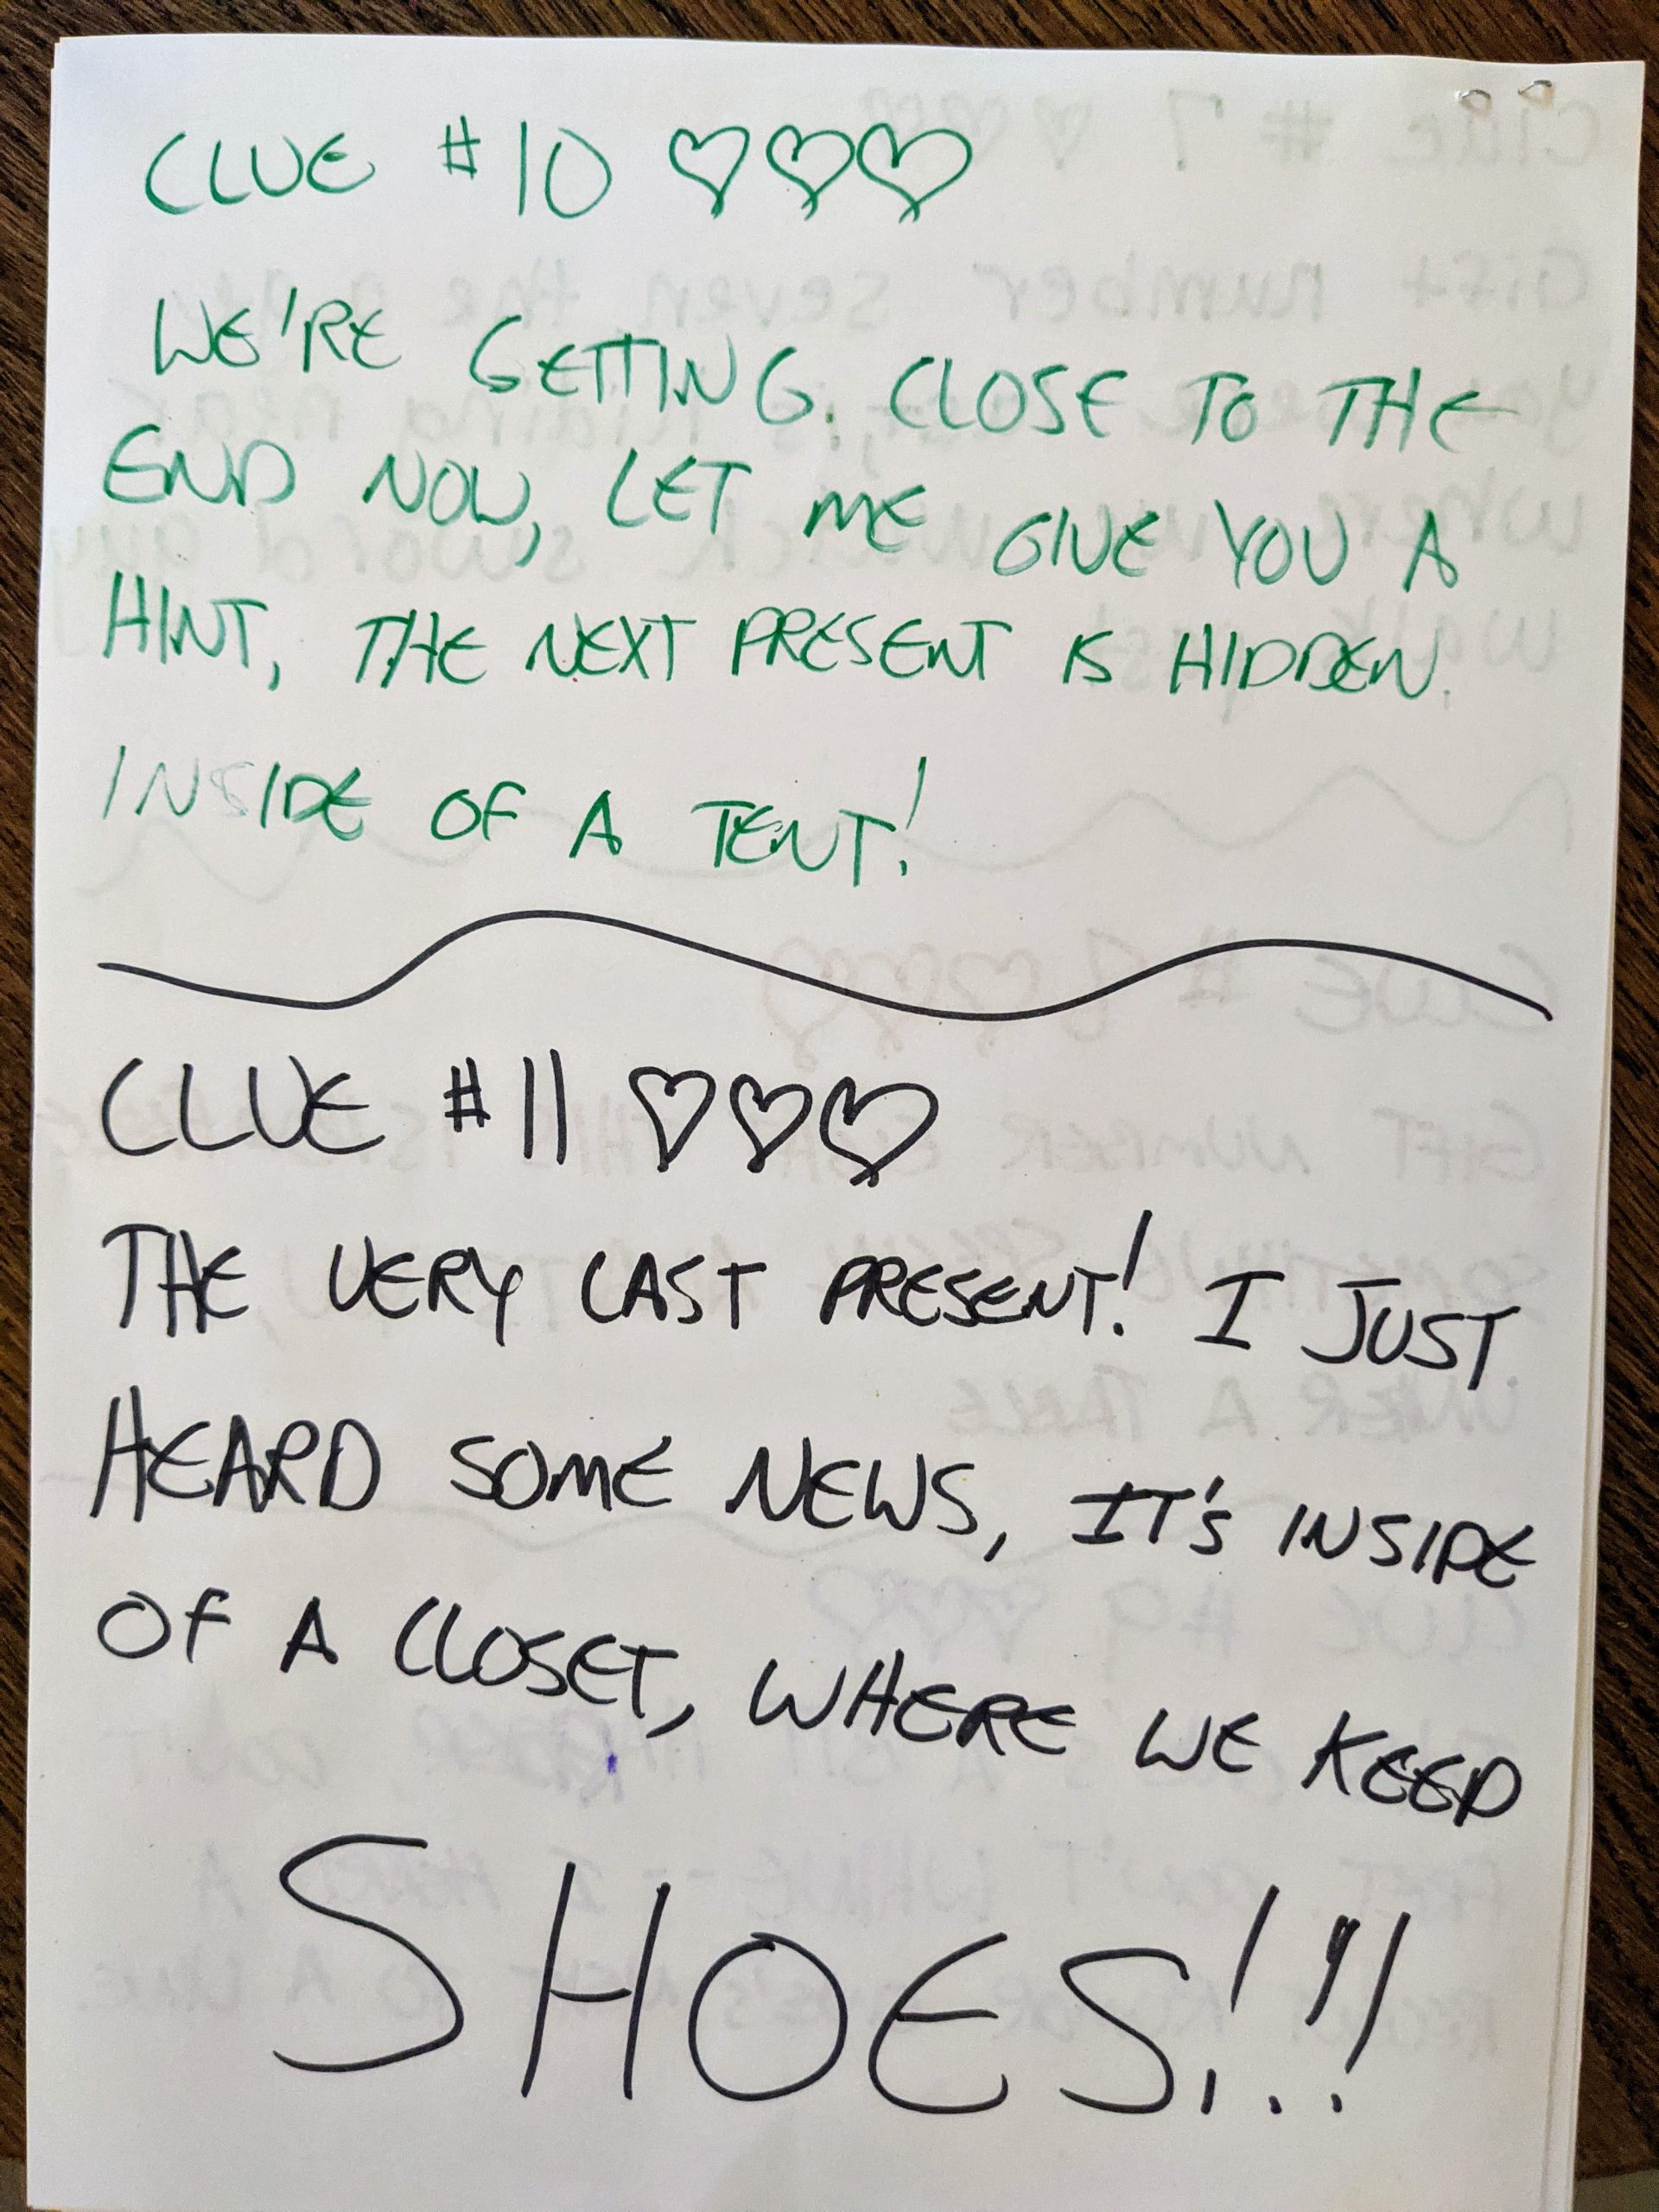 CLUE #10 ♡♡♡
WE'RE GETTING. CLOSE TO THE
END NOW, LET ME GIVE YOU A
HINT, THE NEXT PRESENT IS HIDDEN.
INSIDE OF A TENT!
CLUE #11 ♡♡♡
THE VERY LAST PRESENT! I JUST
HEARD SOME NEWS, IT'S INSIDE
OF A CLOSET, WHERE WE KEEP
SHOES!!!